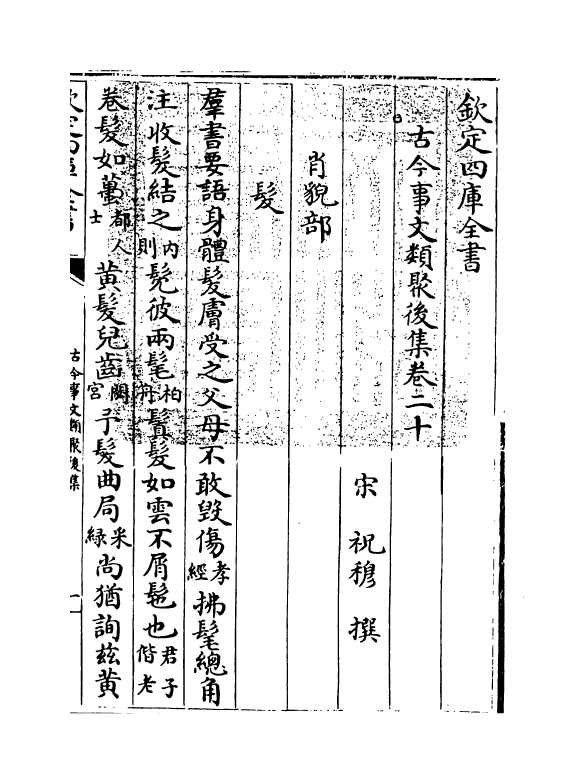 欽定四庫全書
古今事文類聚後集卷二十
宋 祝穆 撰
肖貌部
髮
羣書要語身體髮膚受之父母不敢毀傷孝經拂髦總角
注收髮結之内則髧彼兩髦柏舟鬒髮如雲不屑髢也君子偕老
卷髮如蠆都人士黄髮兒齒閟宮予髮曲局采緑尚猶詢兹黄
古今事文類聚後集